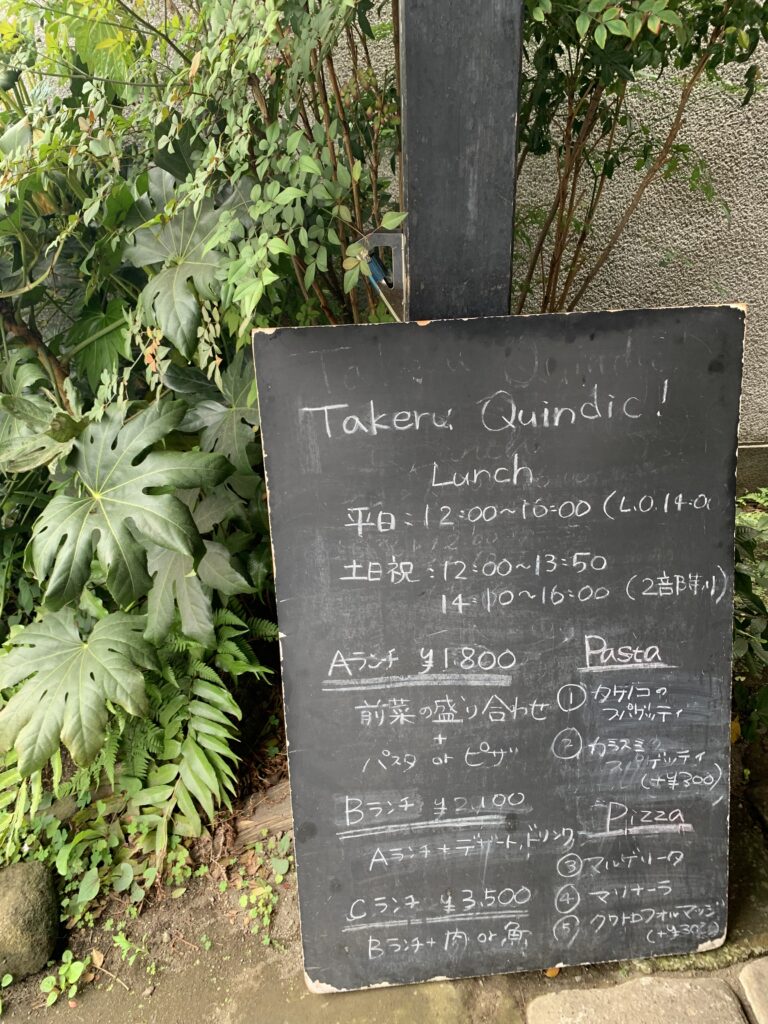 Takeru Quindic!
Lunch
平日:12:00~16:00 (L.O.14:0
土日祝:12:00~13:50
14:10~16:00 (2部制)
Aランチ ¥1.800
前菜の盛り合わせ
+
パスタ or ピザ
Bランチ ¥2,100
Aランチ+デザート,ドリンク
Cランチ ¥3,500
Bランチ+肉 or 魚
Pasta
① タケノコの
スパゲッティ
② カラスミ
スパゲッティ
(+¥300)
Pizza
③ マルゲリータ
④ マリナーラ
⑤ クワトロフォルマッジ
(+¥300)